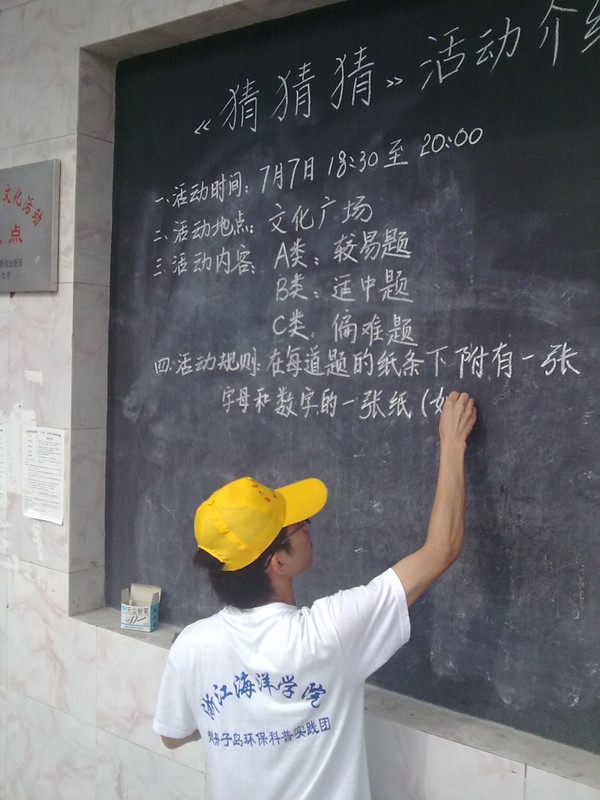 《猜猜猜》活动介
一、活动时间：7月7日 18:30至 20:00
二、活动地点：文化广场
三、活动内容：A类：较易题
B类：适中题
C类：偏难题
四、活动规则：在每道题的纸条下附有一张
字母和数字的一张纸（如
文化活动
点
无尘粉笔
浙江海洋学院
子岛环保科普实践团